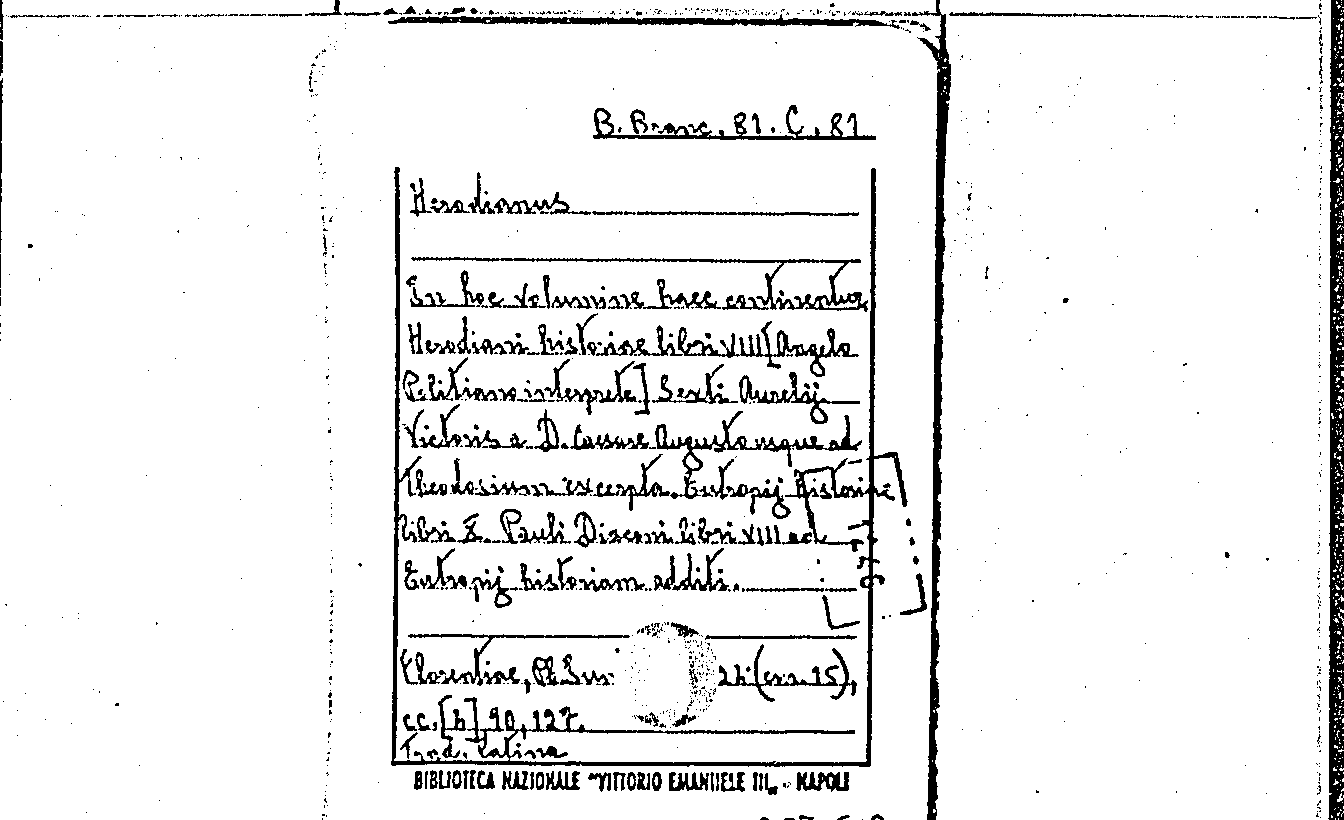 B. Branc. 81. C. 81
Herodianus
In hoc volumine haec continentur
Herodiani historiae libri VIII [Angelo
Politiano interprete] Sexti Aurelij
Victoris a D. Caesare Augusto usque ad
Theodosium excerpta. Eutropij historiae
libri X. Pauli Diaconi libri VIII ad
Eutropij historiam additi.
Florentiae, Ph. Iun (crs. 15),
cc. [4], 90, 127.
Trad. latina
BIBLIOTECA NAZIONALE "VITTORIO EMANUELE III„ - NAPOLI